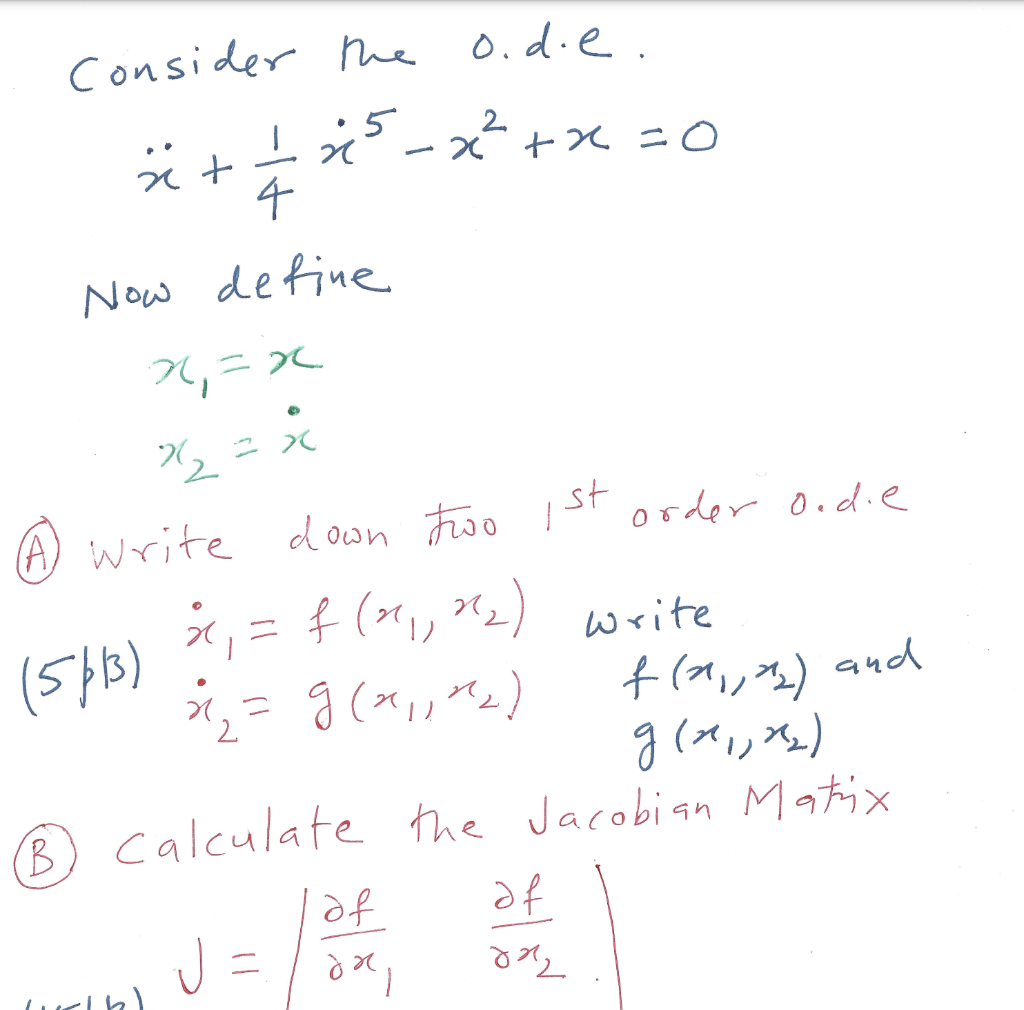 Consider the o.d.e.
ẍ + 1/4 ẋ⁵ - x² + x = 0
Now define
x₁ = x
x₂ = ẋ
(A) Write down two 1st order o.d.e
ẋ₁ = f(x₁, x₂) write
ẋ₂ = g(x₁, x₂) f(x₁, x₂) and
g(x₁, x₂)
(B) Calculate the Jacobian Matrix
J = | ∂f/∂x₁ ∂f/∂x₂ |